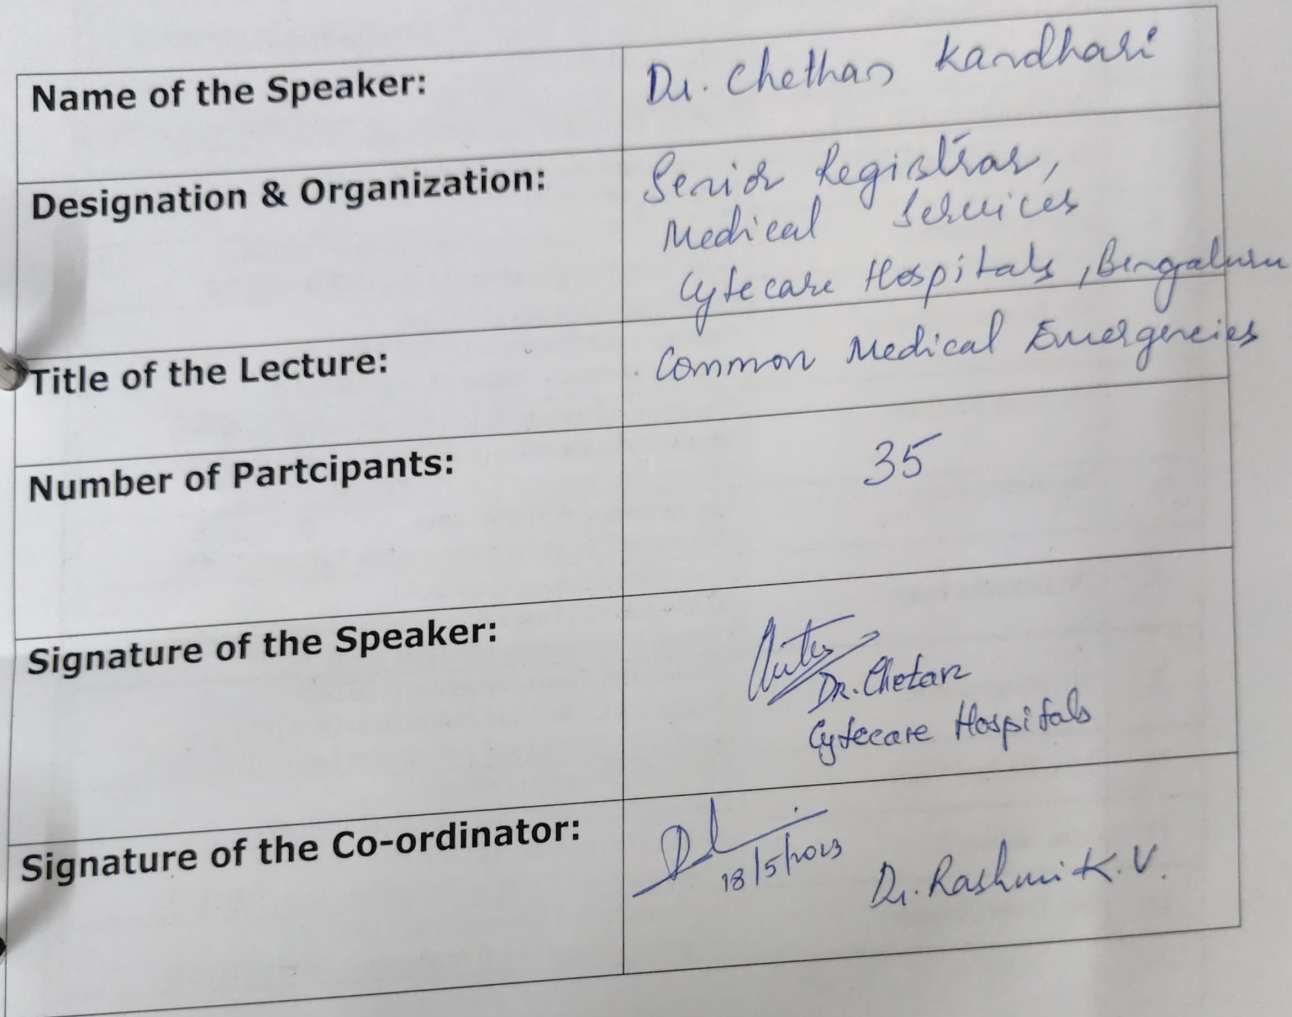 Name of the Speaker:
Dr. Chethan Kandhari
Designation & Organization:
Senior Registrar,
Medical Services
Cytecare Hospitals, Bengaluru
Title of the Lecture:
Common Medical Emergencies
Number of Partcipants:
35
Signature of the Speaker:
Dr. Chetan
Cytecare Hospitals
Signature of the Co-ordinator:
18/5/2023
Dr. Rashmi K.V.